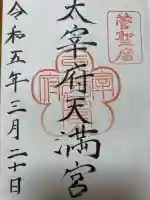 菅聖廟
太宰府天満宮
令和五年三月二十日